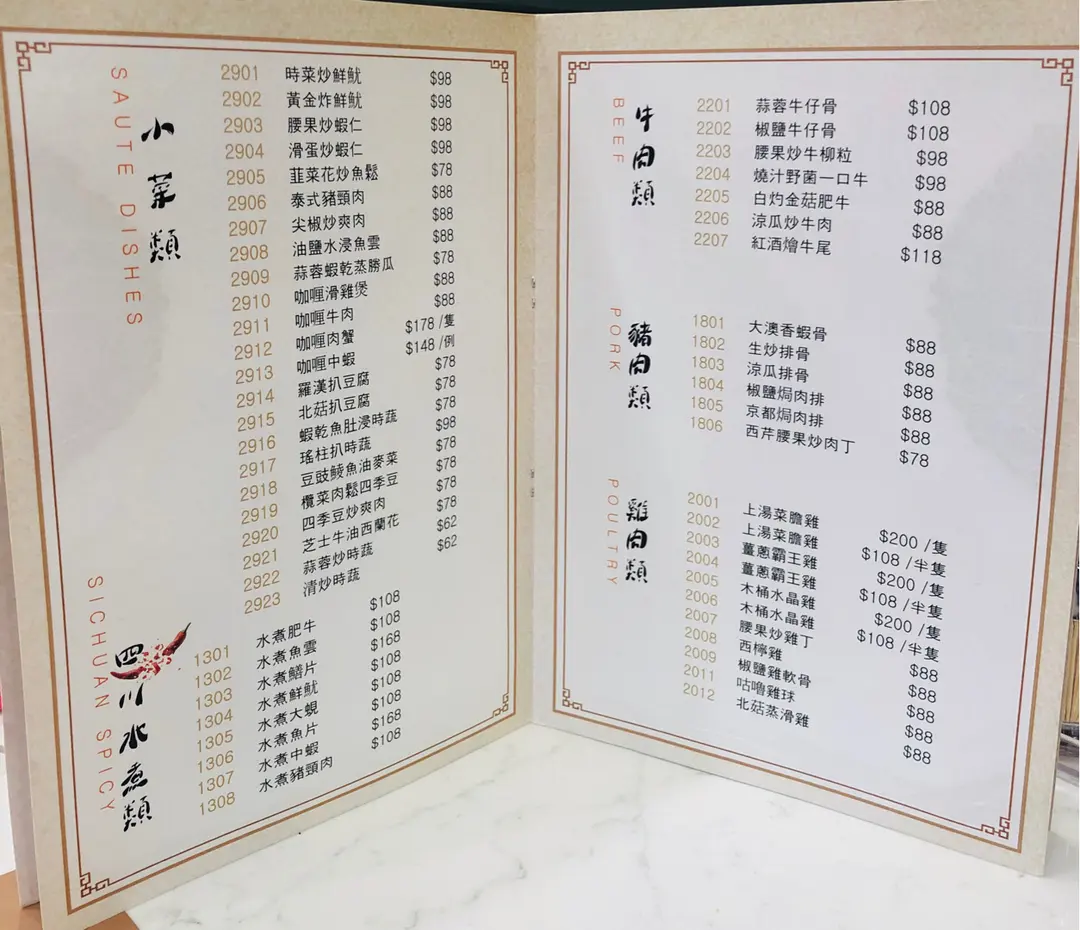 小菜類
SAUTE DISHES
2901 時菜炒鮮魷 $98
2902 黃金炸鮮魷 $98
2903 腰果炒蝦仁 $98
2904 滑蛋炒蝦仁 $98
2905 韮菜花炒魚鬆 $78
2906 泰式豬頸肉 $88
2907 尖椒炒爽肉 $88
2908 油鹽水浸魚雲 $88
2909 蒜蓉蝦乾蒸勝瓜 $78
2910 咖喱滑雞煲 $88
2911 咖喱牛肉 $88
2912 咖喱肉蟹 $178 /隻
2913 咖喱中蝦 $148 /例
2914 羅漢扒豆腐 $78
2915 北菇扒豆腐 $78
2916 蝦乾魚肚浸時蔬 $78
2917 瑤柱扒時蔬 $98
2918 豆豉鯪魚油麥菜 $78
2919 欖菜肉鬆四季豆 $78
2920 四季豆炒爽肉 $78
2921 芝士牛油西蘭花 $78
2922 蒜蓉炒時蔬 $62
2923 清炒時蔬 $62
四川水煮類
SICHUAN SPICY
1301 水煮肥牛 $108
1302 水煮魚雲 $108
1303 水煮鱔片 $168
1304 水煮鮮魷 $108
1305 水煮大蜆 $108
1306 水煮魚片 $108
1307 水煮中蝦 $168
1308 水煮豬頸肉 $108
牛肉類
BEEF
2201 蒜蓉牛仔骨 $108
2202 椒鹽牛仔骨 $108
2203 腰果炒牛柳粒 $98
2204 燒汁野菌一口牛 $98
2205 白灼金菇肥牛 $88
2206 涼瓜炒牛肉 $88
2207 紅酒燴牛尾 $118
豬肉類
PORK
1801 大澳香蝦骨 $88
1802 生炒排骨 $88
1803 涼瓜排骨 $88
1804 椒鹽焗肉排 $88
1805 京都焗肉排 $88
1806 西芹腰果炒肉丁 $78
雞肉類
POULTRY
2001 上湯菜膽雞 $200 /隻
2002 上湯菜膽雞 $108 /半隻
2003 薑蔥霸王雞 $200 /隻
2004 薑蔥霸王雞 $108 /半隻
2005 木桶水晶雞 $200 /隻
2006 木桶水晶雞 $108 /半隻
2007 腰果炒雞丁 $88
2008 西檸雞 $88
2009 椒鹽雞軟骨 $88
2011 咕嚕雞球 $88
2012 北菇蒸滑雞 $88